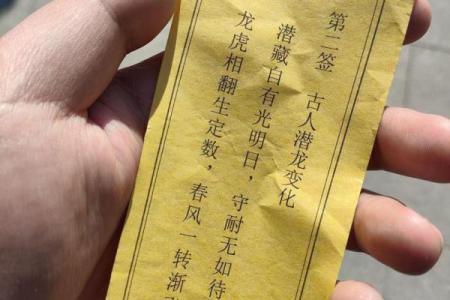 第二签 古人潜龙变化
潜藏自有光明日，守耐无如待
龙虎相翻生定数，春风一转渐